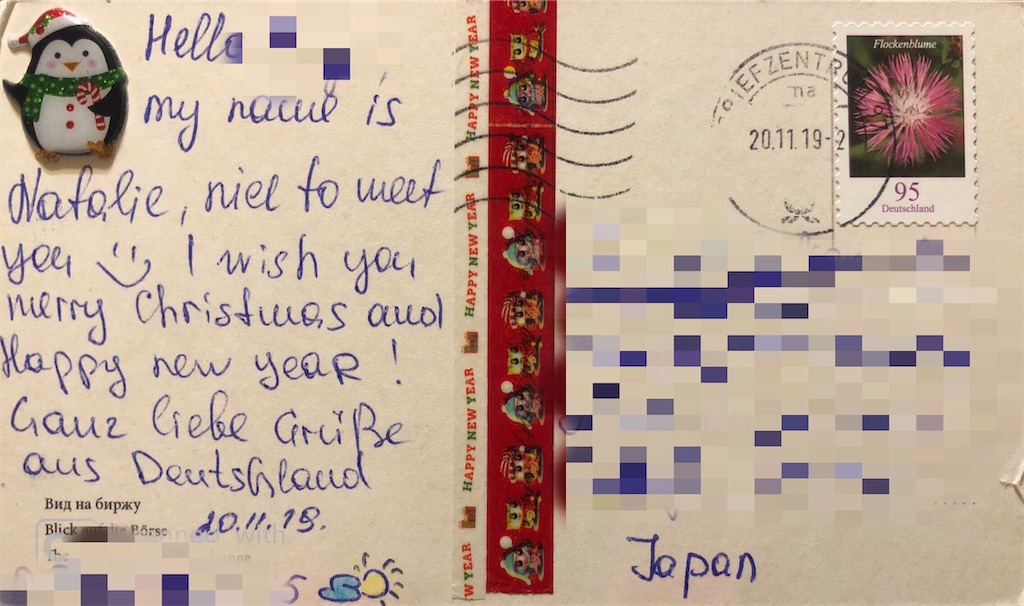 Hello
my name is
Natalie, nice to meet
you I wish you
merry Christmas and
Happy new year !
Ganz liebe Grüße
aus Deutschland
Вид на биржу
Blick auf die Börse
20.11.19.
The
5
HAPPY NEW YEAR
HAPPY NEW YEAR
HAPPY NEW YEAR
W YEAR
BRIEFZENTRUM
na
20.11.19-2
Flockenblume
95
Deutschland
Japan